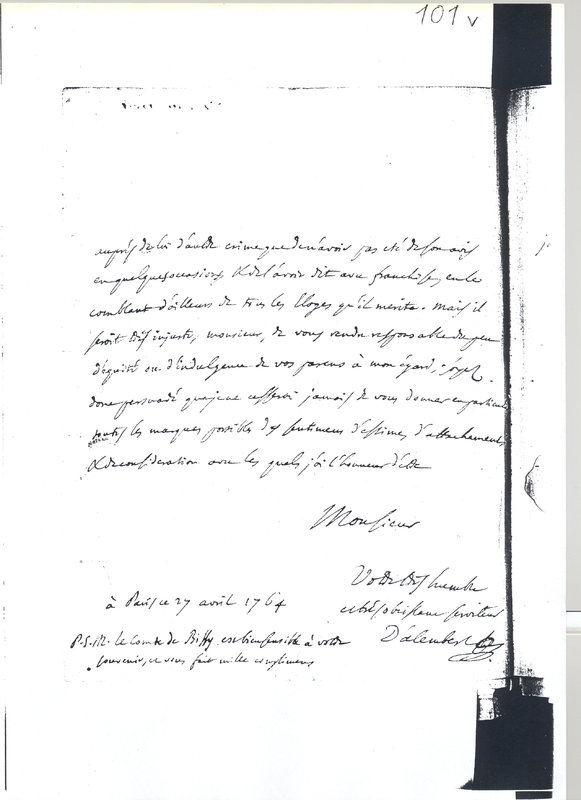 101 v
auprès de lui d'autre crime que de n'avoir pas été de son avis
en quelques occasions & de l'avoir dit avec franchise, en le
comblant d'ailleurs de tous les Eloges qu'il merite. mais il
seroit très injuste, monsieur, de vous rendre responsable du peu
d'équité ou d'indulgence de vos parens à mon égard. soyez
donc persuadé que je ne cesserai jamais de vous donner en particulier
toutes les marques possibles des sentimens d'estimes d'attachements
& de consideration avec les quels j'ai l'honneur d'être
Monsieur
Votre très humble
et très obeissant serviteur
D'alembert
à Paris ce 27 avril 1764
P.S. M. le Comte de Bissy est bien sensible à votre
souvenir, et vous fait mille complimens